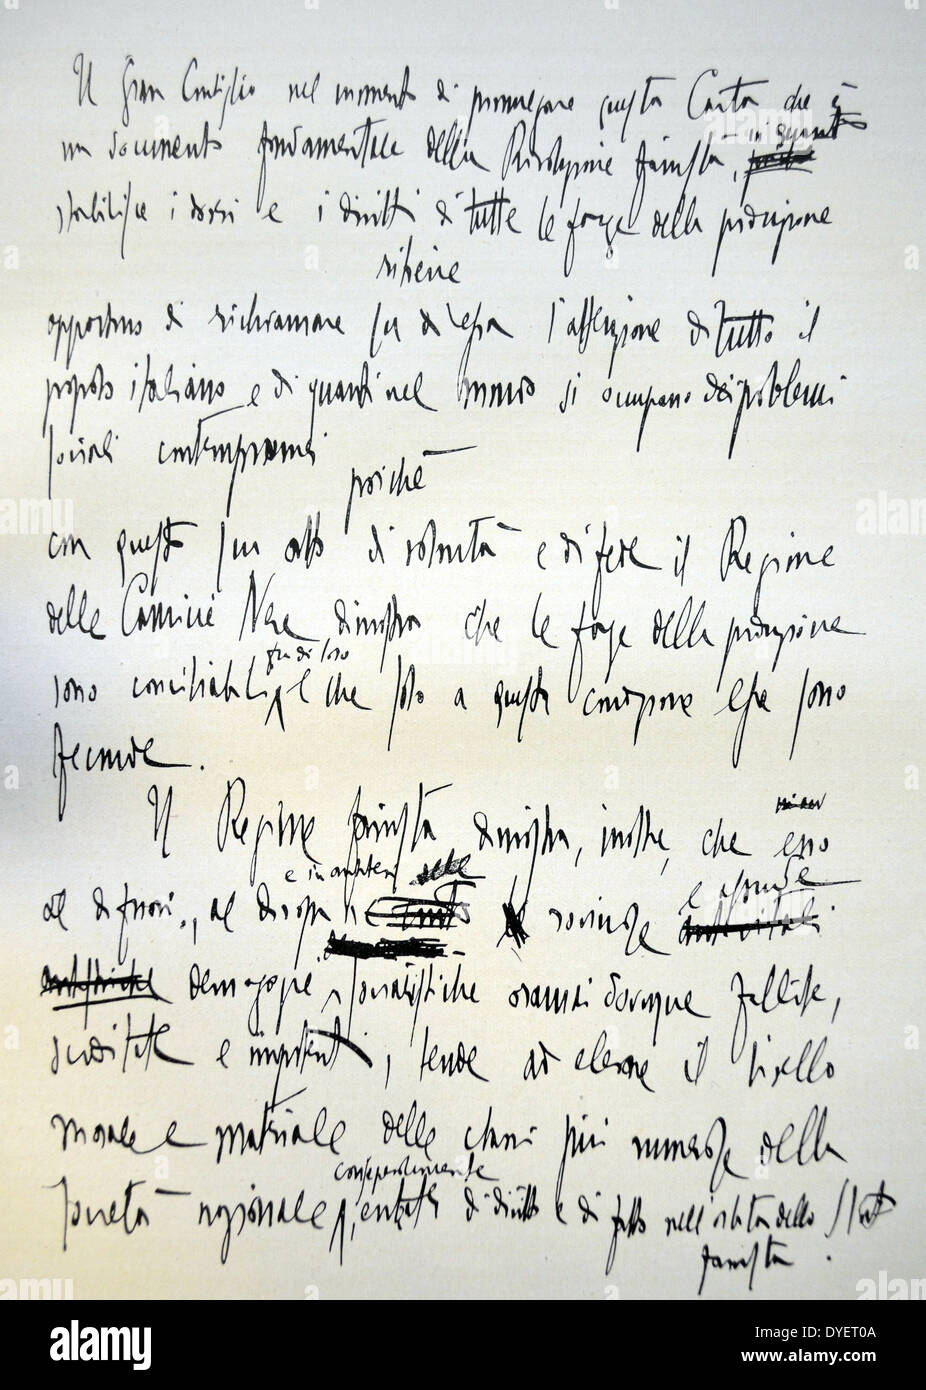 Il Gran Consiglio nel momento di promulgare questa Carta che è
un documento fondamentale della Rivoluzione fascista, in quanto
stabilisce i doveri e i diritti di tutte le forze della produzione
ritiene
opportuno di richiamare su di essa l'attenzione di tutto il
popolo italiano e di quanti nel mondo si occupano dei problemi
sociali contemporanei
poiché
con questo suo atto di volontà e di fede il Regime
delle Camicie Nere dimostra che le forze della produzione
fra di loro
sono conciliabili e che solo a questa condizione esse sono
feconde.
Il Regime fascista dimostra, inoltre, che esso
e in antitesi
al di fuori, al di sopra rovinose e
demagogie socialistiche oramai dovunque fallite,
svuotate e impotenti, tende ad elevare il livello
morale e materiale delle classi più numerose della
consapevolmente
società nazionale, entrate di diritto e di fatto nell'orbita dello Stato
fascista.
alamy
Image ID: DYET0A
www.alamy.com